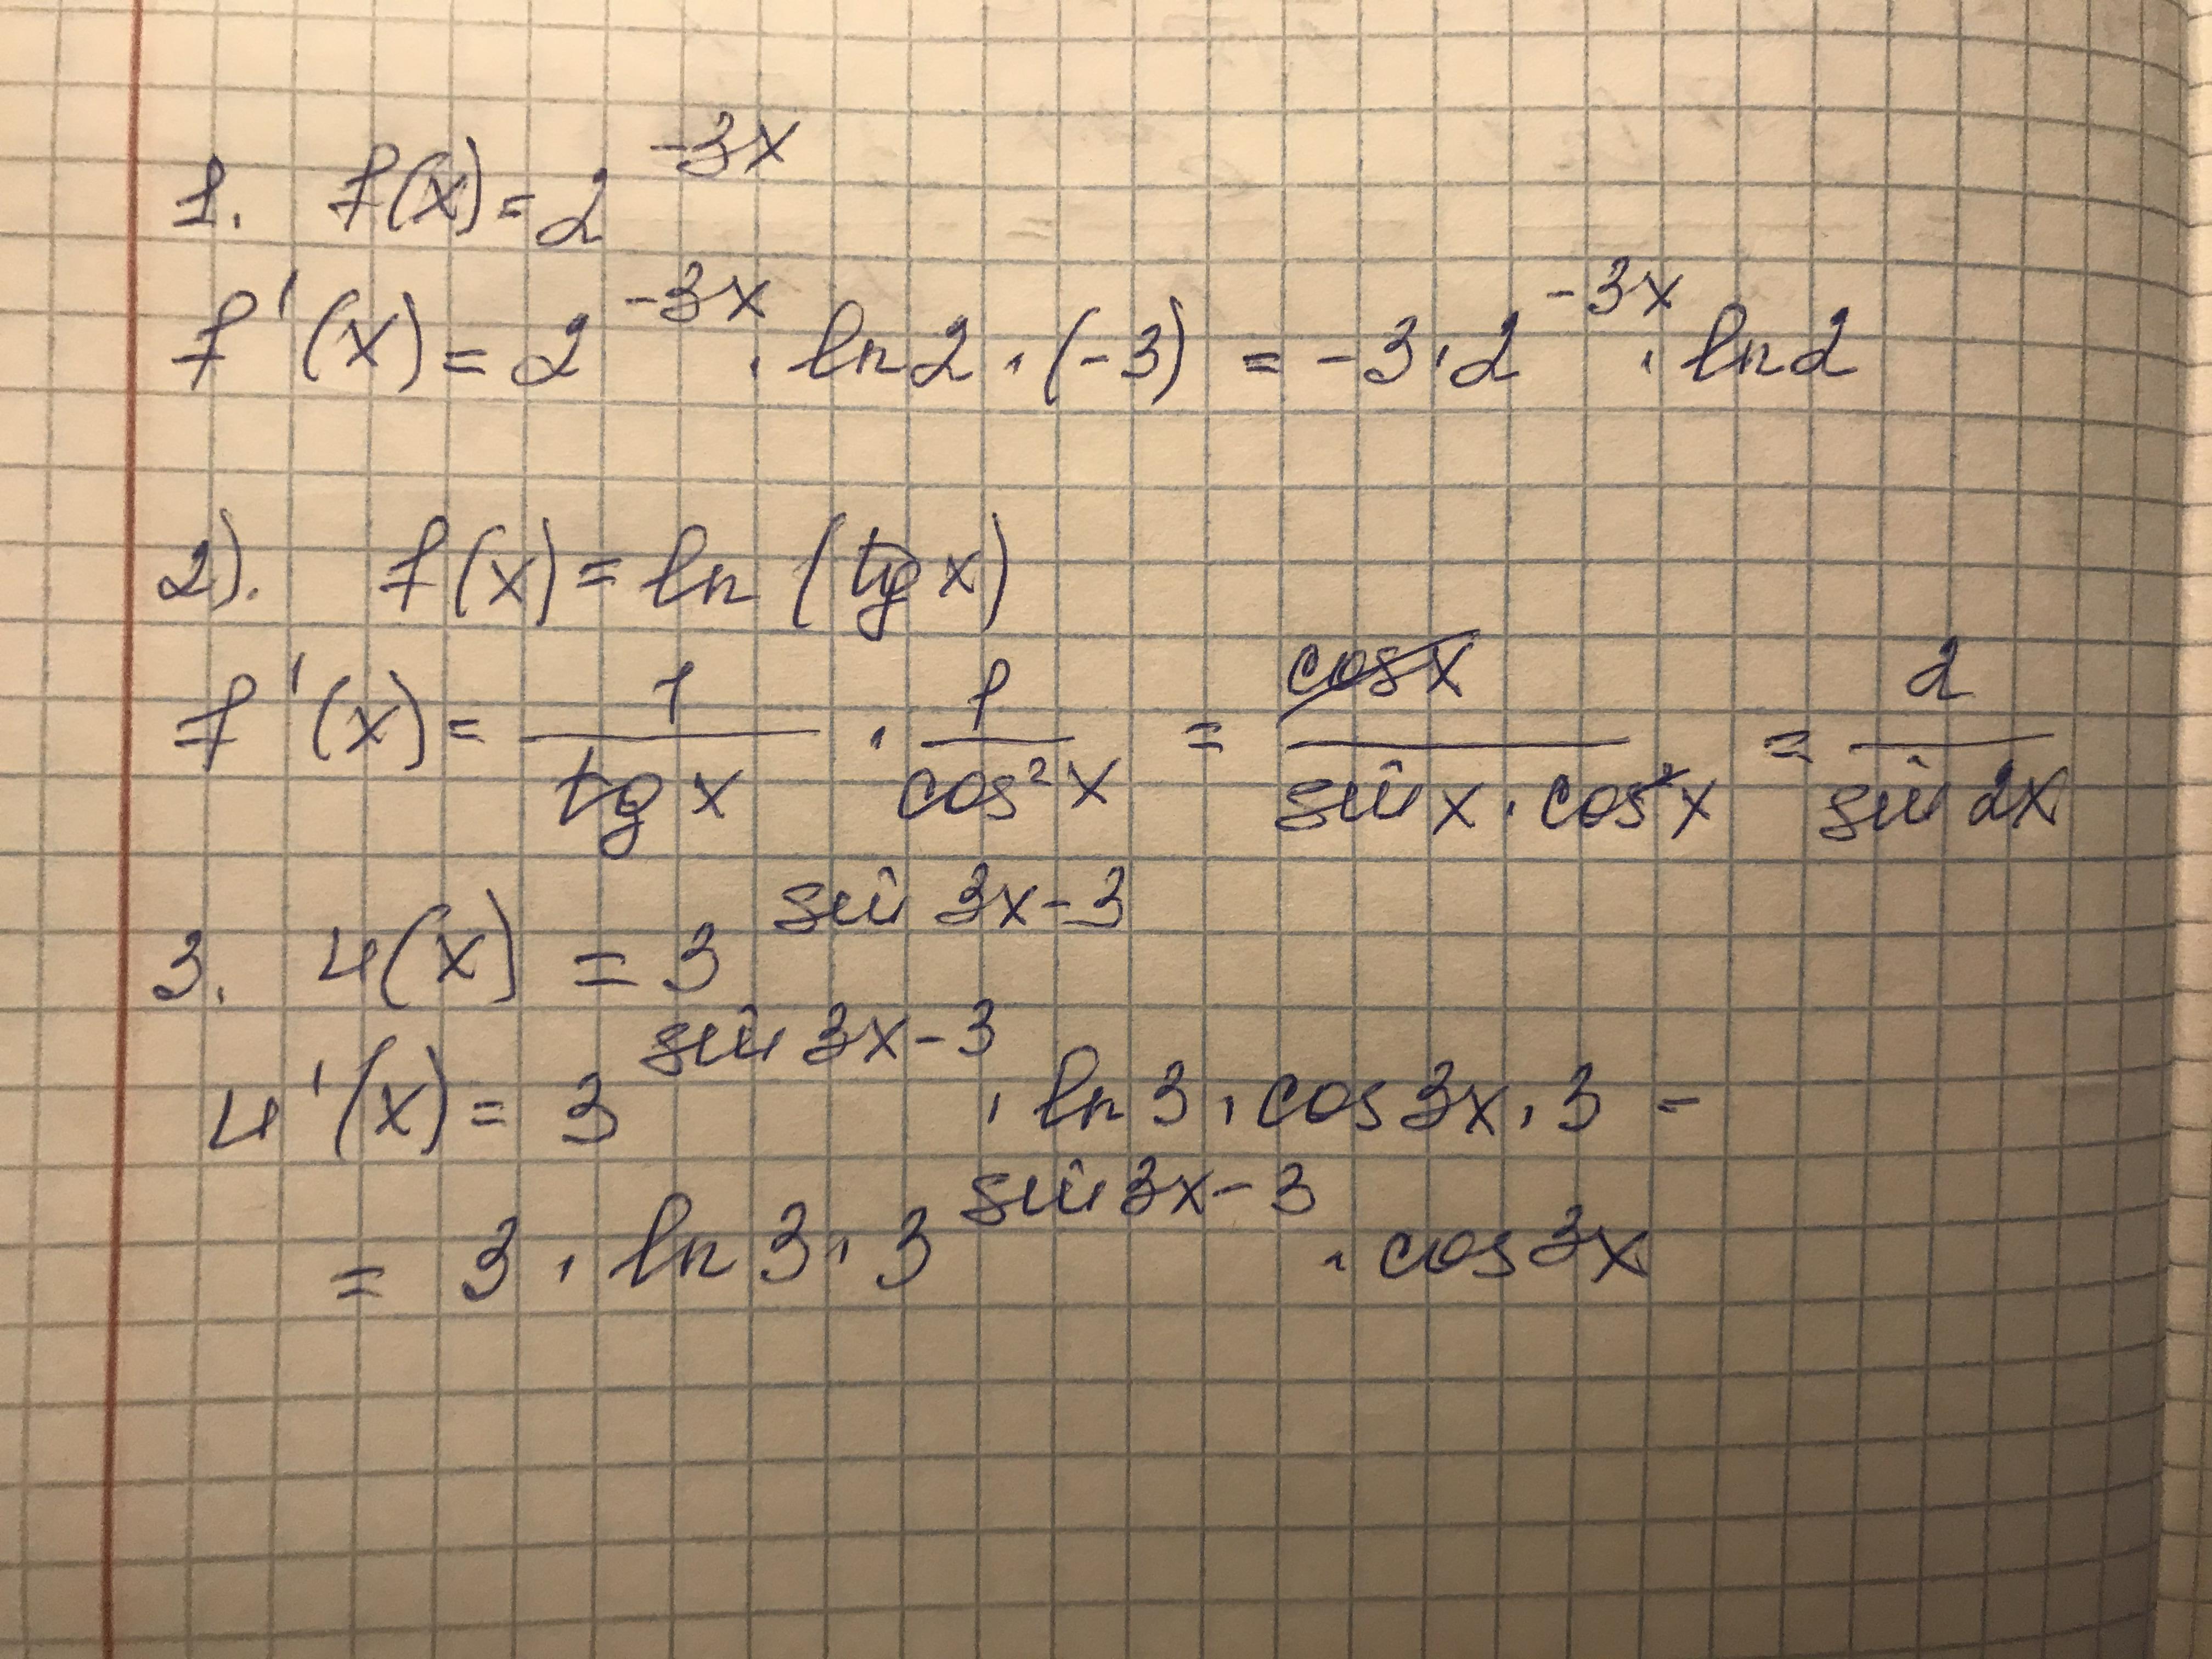 1. f(x)=2^{-3x}
f'(x)=2^{-3x}·ln2·(-3)=-3·2^{-3x}·ln2
2). f(x)=ln(tg x)
f'(x)=\frac{1}{tg x}·\frac{1}{cos²x}=\frac{cosx}{sin x·cos²x}=\frac{2}{sin 2x}
3. u(x)=3^{sin 3x-3}
u'(x)=3^{sin 3x-3}·ln3·cos3x·3=
=3·ln3·3^{sin3x-3}·cos3x